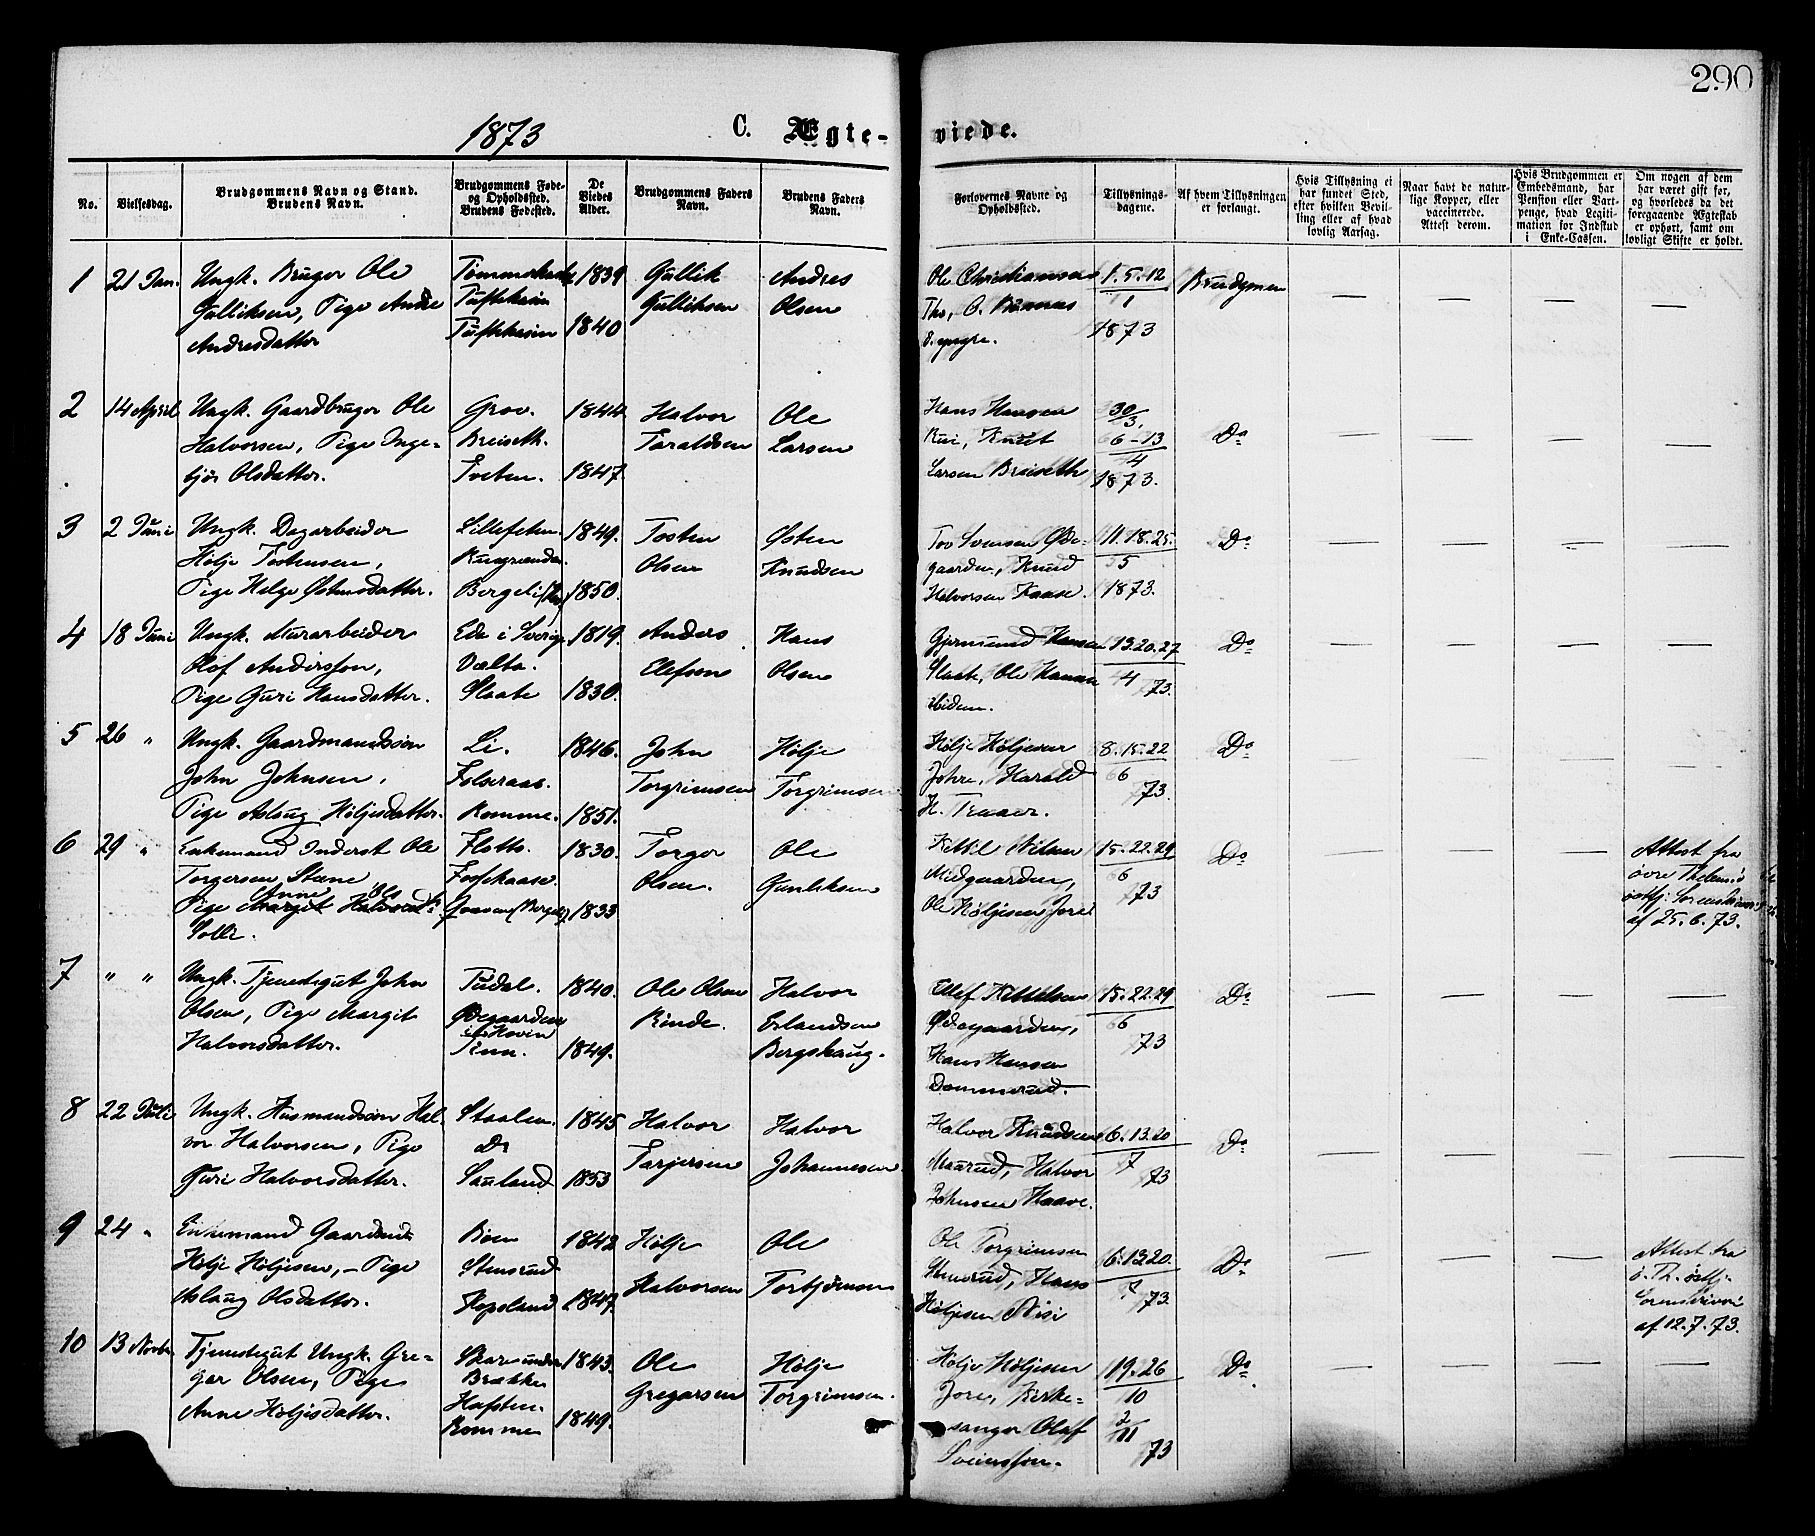 290
1873
C. Ægte-viede.
No.
Vielsesdag.
Brudgommens Navn og Stand.
Brudens Navn.
Brudgommens Føde-
og Opholdssted.
Brudens Fødested.
De
Viedes
Alder.
Brudgommens Faders
Navn.
Brudens Faders
Navn.
Forlovernes Navne og
Opholdssted.
Tillysnings-
dagene.
Af hvem Tillysningen
er forlangt.
Hvis Tillysning ei
har fundet Sted,
efter hvilken Bevil-
ling eller af hvad
lovlig Aarsag.
Naar havt de natur-
lige Kopper, eller
vaccinerede.
Attest derom.
Hvis Brudgommen er
Embedsmand, har
Pension eller Vart-
penge, hvad Legiti-
mation for Indskud
i Enke-Cassen.
Om nogen af dem
har været gift før,
og hvorledes da det
foregaaende Ægteskab
er ophørt, samt om
lovligt Skifte er holdt.
1 21 Jan.
Ungk. Bruger Ole
Gulliksen, Pige Andre
Andresdatter
Tufteheim
Tufteheim
1839
1840
Gullik
Gulliksen
Andres
Olsen
Ole Christiansen
Ths. O.
d. yngre.
1. 5. 12
1
1873
Brudgmen
2 14 April
Ungk. Gaardbruger Ole
Halvorsen, Pige Inge-
bjør Olsdatter.
Grov.
Breiseth.
Tveten.
1844
1847.
Halvor
Taraldsen
Ole
Larsen
Hans Hansen
Rui, Knut
Larsen Breiseth
30/3,
6-13
4
1873.
Do
3 2 Juni
Ungk. Dagarbeider
Hølje Tostensen,
Pige Helge Østensdatter.
Lillefeten
Bergeli
1849.
1850.
Tosten
Olsen
Østen
Knudsen
Tov Svensen Øde-
gaarden, Knud
Halvorsen Kaase.
11. 18. 25.
5
1873.
Do
4 18 Juni
Ungk. Murarbeider
Olof Andersson,
Pige Guri Hansdatter.
Eda i Sverig
Vælta.
Slaate
1819.
1830.
Anders
Elefson
Hans
Olsen
Gjermund Hansen
Slaate, Ole Hansen
ibidem.
13. 20. 27
4 73.
Do
5 26 "
Ungk. Gaardmandssøn
John Johnsen,
Pige Aslaug Høljesdatter.
Li.
Folseraas.
Romme.
1846.
1851.
John
Torgrimsen
Hølje
Torgrimsen
Hølje Høljesen
Johre, Harald
H. Traaer.
8. 15. 22
6
73.
Do
6 29 "
Enkemand Inderst Ole
Torgersen Stene
Anne Ols
Pige Margit Halvorsd.
Solli.
Flatto.
Fossekaase.
Joensen (Bergeli)
1830.
1833
Torger
Olsen.
Ole
Gunliksen
Kittil Nilsen
Midgaarden,
Ole Høljesen Jore
15. 22. 29
6
73
Do
Attest fra
øvre Thelem.
østfj. Sorenskriveri
af 25. 6. 73.
7 " "
Ungk. Tjenestegut John
Olsen, Pige Margit
Halvorsdatter.
Tudal.
Ødegaarden
i Hovin
Finn.
1840.
1849.
Ole Olsen
Rinde.
Halvor
Erlandsen
Bergshaug.
Ellef Kittilsen
Ødegaarden,
Hans Hansen
Dommerud
15. 22. 29
6
73
Do
8 22 Juli
Ungk. Husmandssøn Hal-
vor Halvorsen, Pige
Guri Halvorsdatter.
Staalen.
Do
Sauland
1845
1853
Halvor
Tarjersen
Halvor
Johannesen
Halvor Knudsen
Maurud, Halvor
Johnsen Haave.
6. 13. 20
7
73
Do
9 24 "
Enkemand Gaardmd
Hølje Høljesen, Pige
Aslaug Olsdatter.
Boen
Stensrud
Kopsland
1842
1847.
Hølje
Halvorsen
Ole
Torbjørnsen
Ole Torgrimsen
Stensrud, Hans
Høljesen Nisi
6. 13 20.
7
73.
Do
Attest fra
ø. Th. østfj.
Sorenskriveri
af 12. 7. 73.
10 13 Novbr.
Tjenestegut Ungk. Gre-
gar Olsen, Pige
Anne Høljesdatter.
Skare under
Brække
Haften.
Rommen
1843.
1849.
Ole
Gregarsen
Hølje
Torgrimsen.
Hølje Høljesen
Jore, Kirke-
sanger Olaf
Sveinsson.
19. 26
10
2
11 73
Do